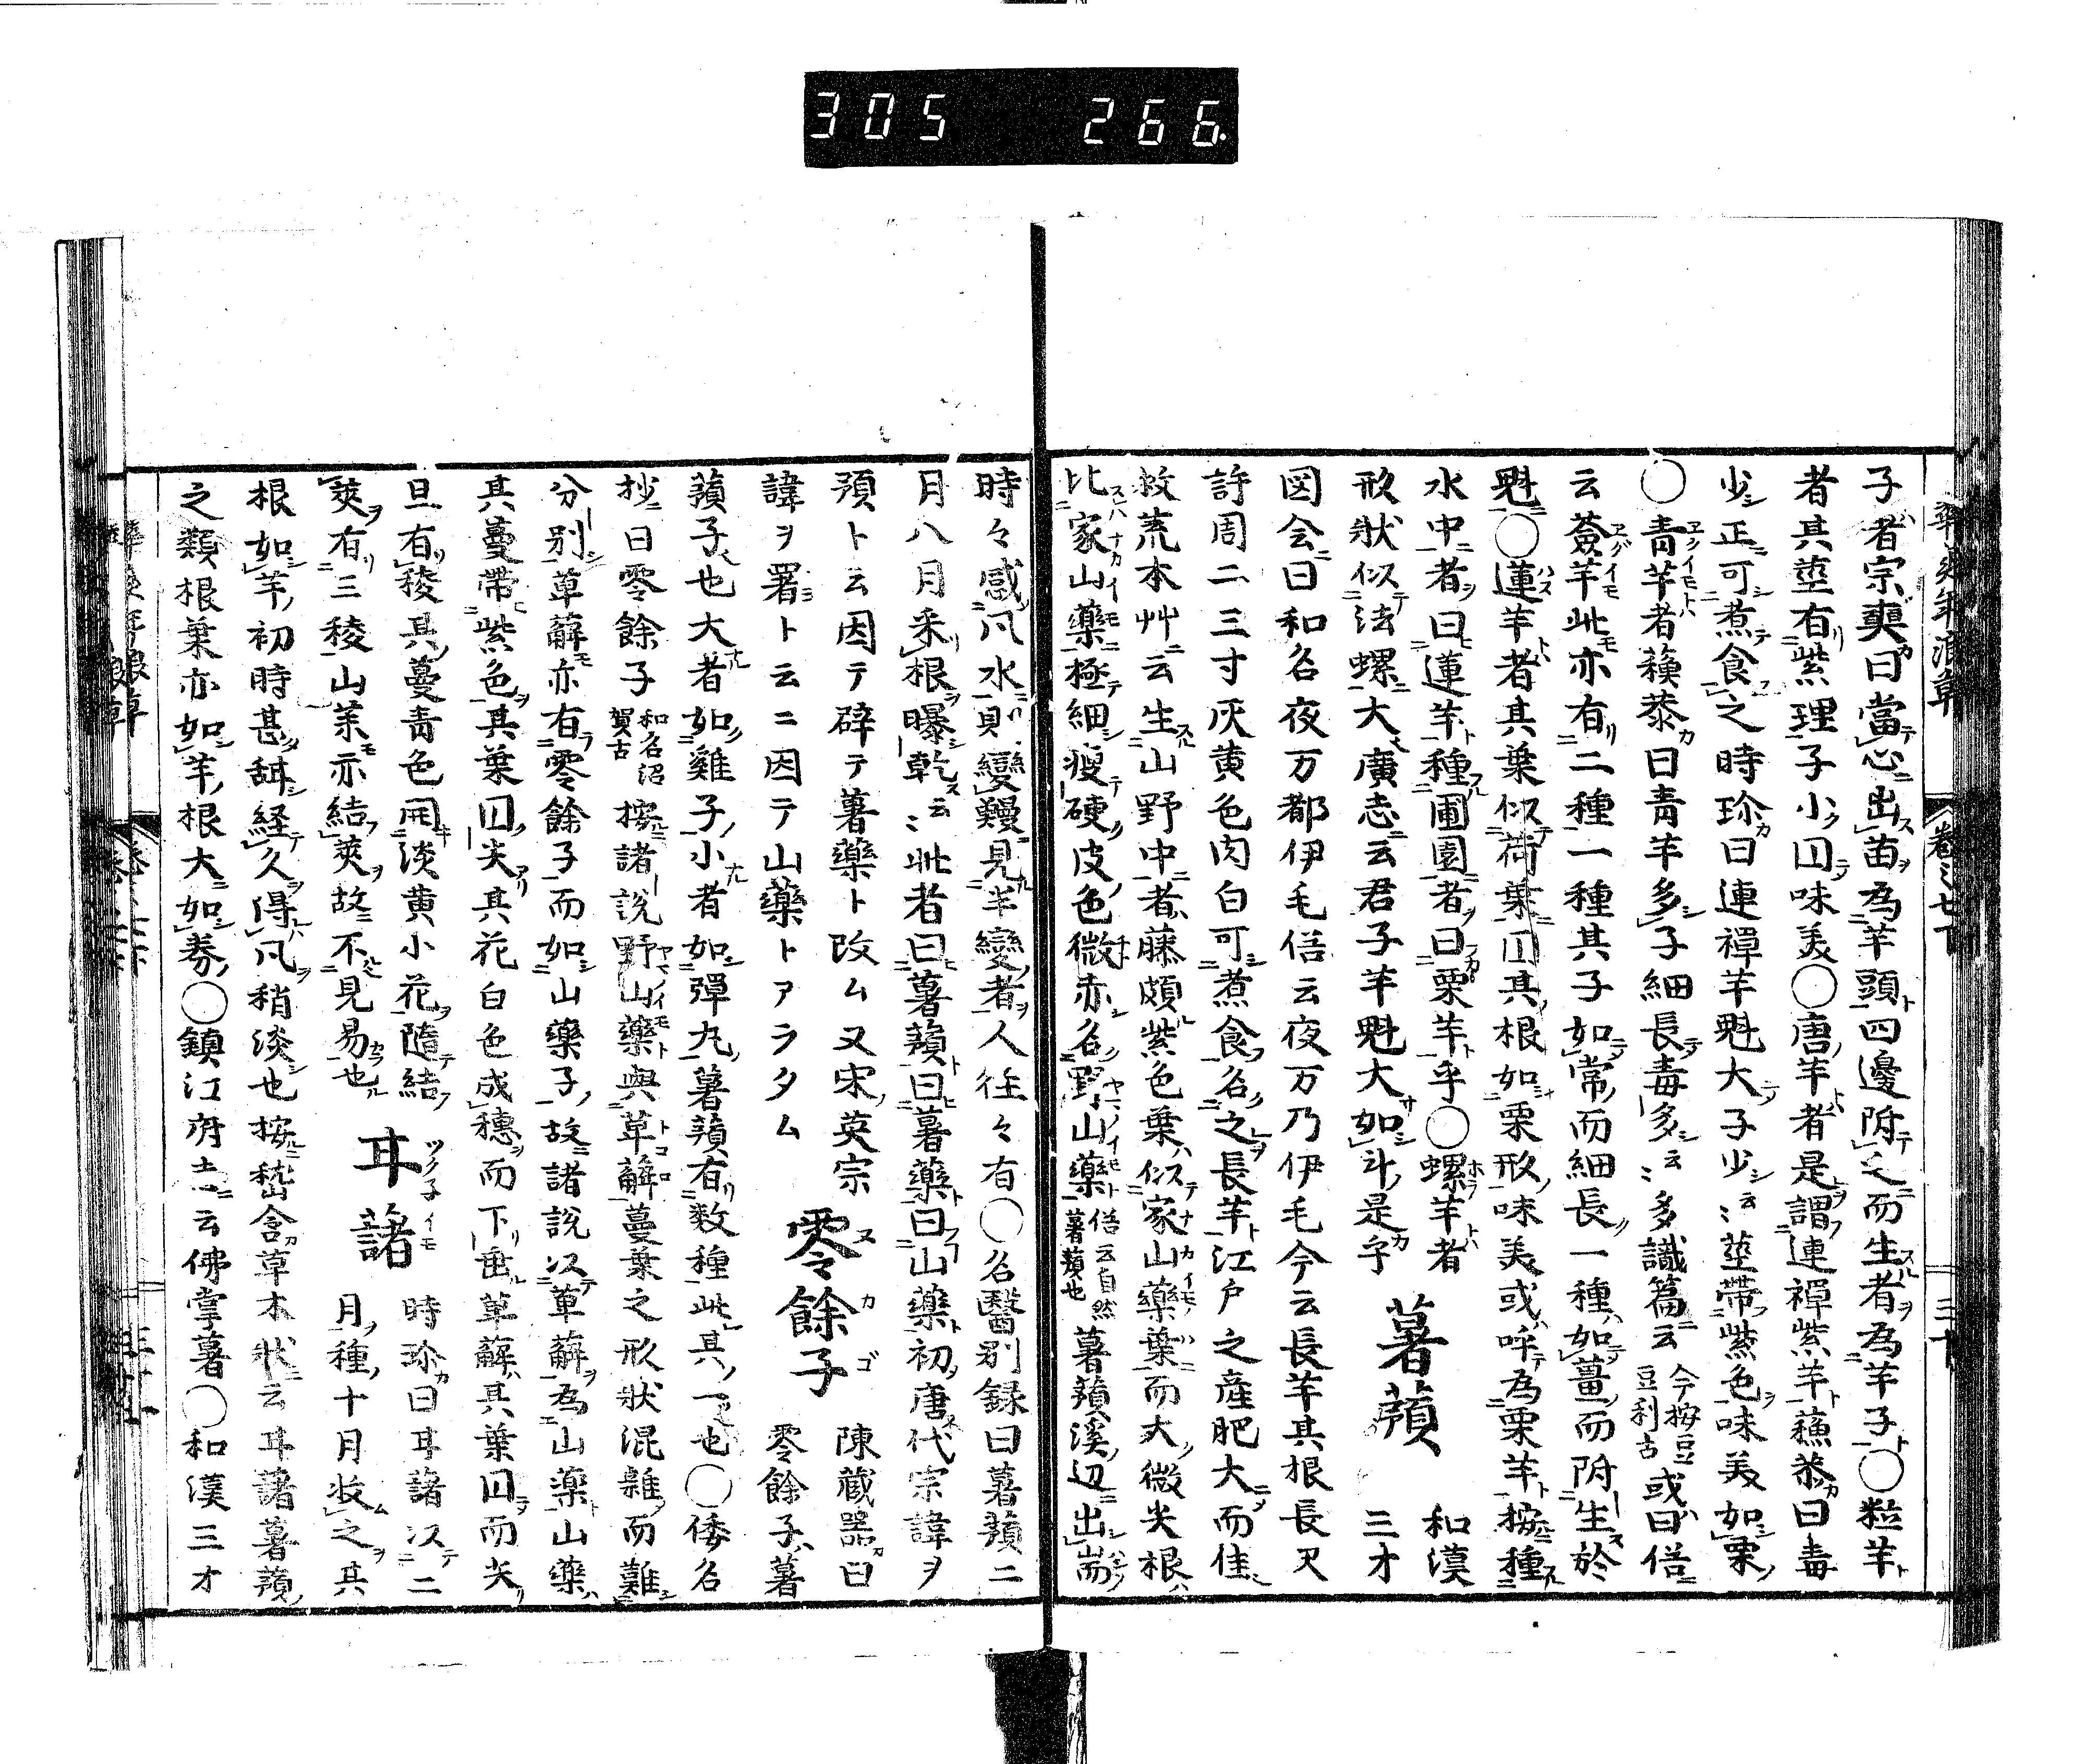 305 266
子者宗奭曰當心出苗為芋頭四邊附之而生者為芋子○粒芋
者其莖有紫理子小囗味美○唐芋者是謂連禪紫芋蘓恭曰毒
少正可煮食之時珍曰連禪芋魁大子少云〻莖帶紫色味美如栗
○青芋者蘓恭曰青芋多子細長毒多云〻多識篇云今按豆豆利古或曰俗
云薟芋此亦有二種一種其子如常而細長一種如薑而附生於
魁○蓮芋者其葉似荷葉囗其根如栗形味美或呼為栗芋按種
水中者曰蓮芋種圃園者曰栗芋乎○螺芋者
形狀似法螺大廣志云君子芋魁大如斗是乎
薯蕷
和漢
三才
図会曰和名夜万都伊毛俗云夜万乃伊毛今云長芋其根長尺
許周二三寸灰黄色肉白可煮食名之長芋江戸之産肥大而佳
救荒本艸云生山野中者藤頗紫色葉似家山藥葉而大微尖根
比家山藥極細瘦硬皮色微赤名野山藥俗云自然薯蕷也薯蕷溪辺出嵓
時々感凡水則變鰻見半變者人往々有○名醫別録曰薯蕷二
月八月采根曝乾云〻此者曰薯蕷曰薯藥曰山藥初唐代宗諱ヲ
預ト云因テ辟テ薯藥ト改ム又宋英宗
諱ヲ署ト云ニ因テ山藥トアラタム
零餘子
ヌカゴ
陳藏器曰
零餘子薯
蕷子也大者如雞子小者如彈丸薯蕷有数種此其一也○倭名
抄曰零餘子和名沼賀古按諸說野山藥與萆薢蔓葉之形狀混雜而難
分别萆薢亦有零餘子而如山藥子故諸說以萆薢為山藥山藥
其蔓帶紫色其葉囗尖其花白色成穗而下垂萆薢其葉囗而尖
旦有稜其蔓青色開淡黄小花隨結
莢有三稜山茱亦結莢故不見易也
甘藷
ツクネイモ
時珍曰甘藷以二
月種十月收之其
根如芋初時甚甜経久得凡稍淡也按嵇含草木狀云甘藷薯蕷
之類根葉亦如芋根大如拳○鎮江府志云佛掌薯○和漢三才